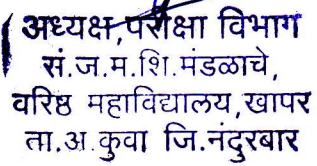 अध्यक्ष,परीक्षा विभाग
सं.ज.म.शि.मंडळाचे,
वरिष्ठ महाविद्यालय,खापर
ता.अ.कुवा जि.नंदुरबार